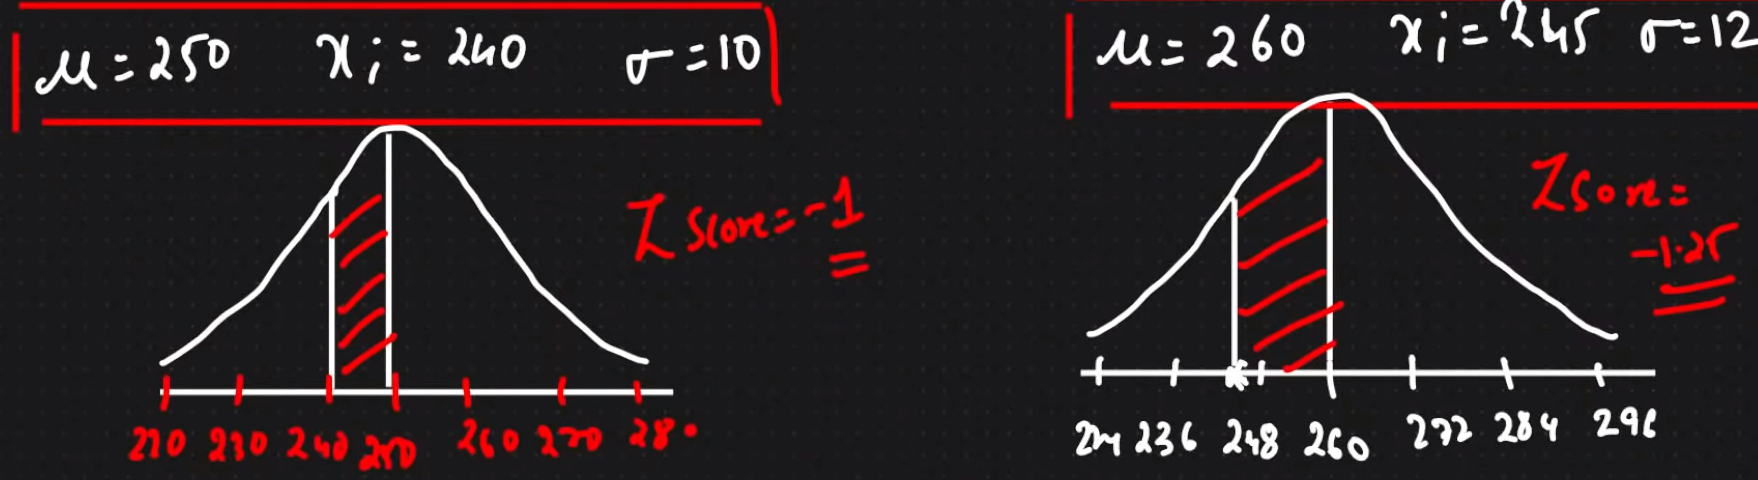 μ = 250 xᵢ = 240 σ = 10
Z score = -1
220 230 240 250 260 270 280
μ = 260 xᵢ = 245 σ = 12
Z score =
-1.25
224 236 248 260 272 284 296